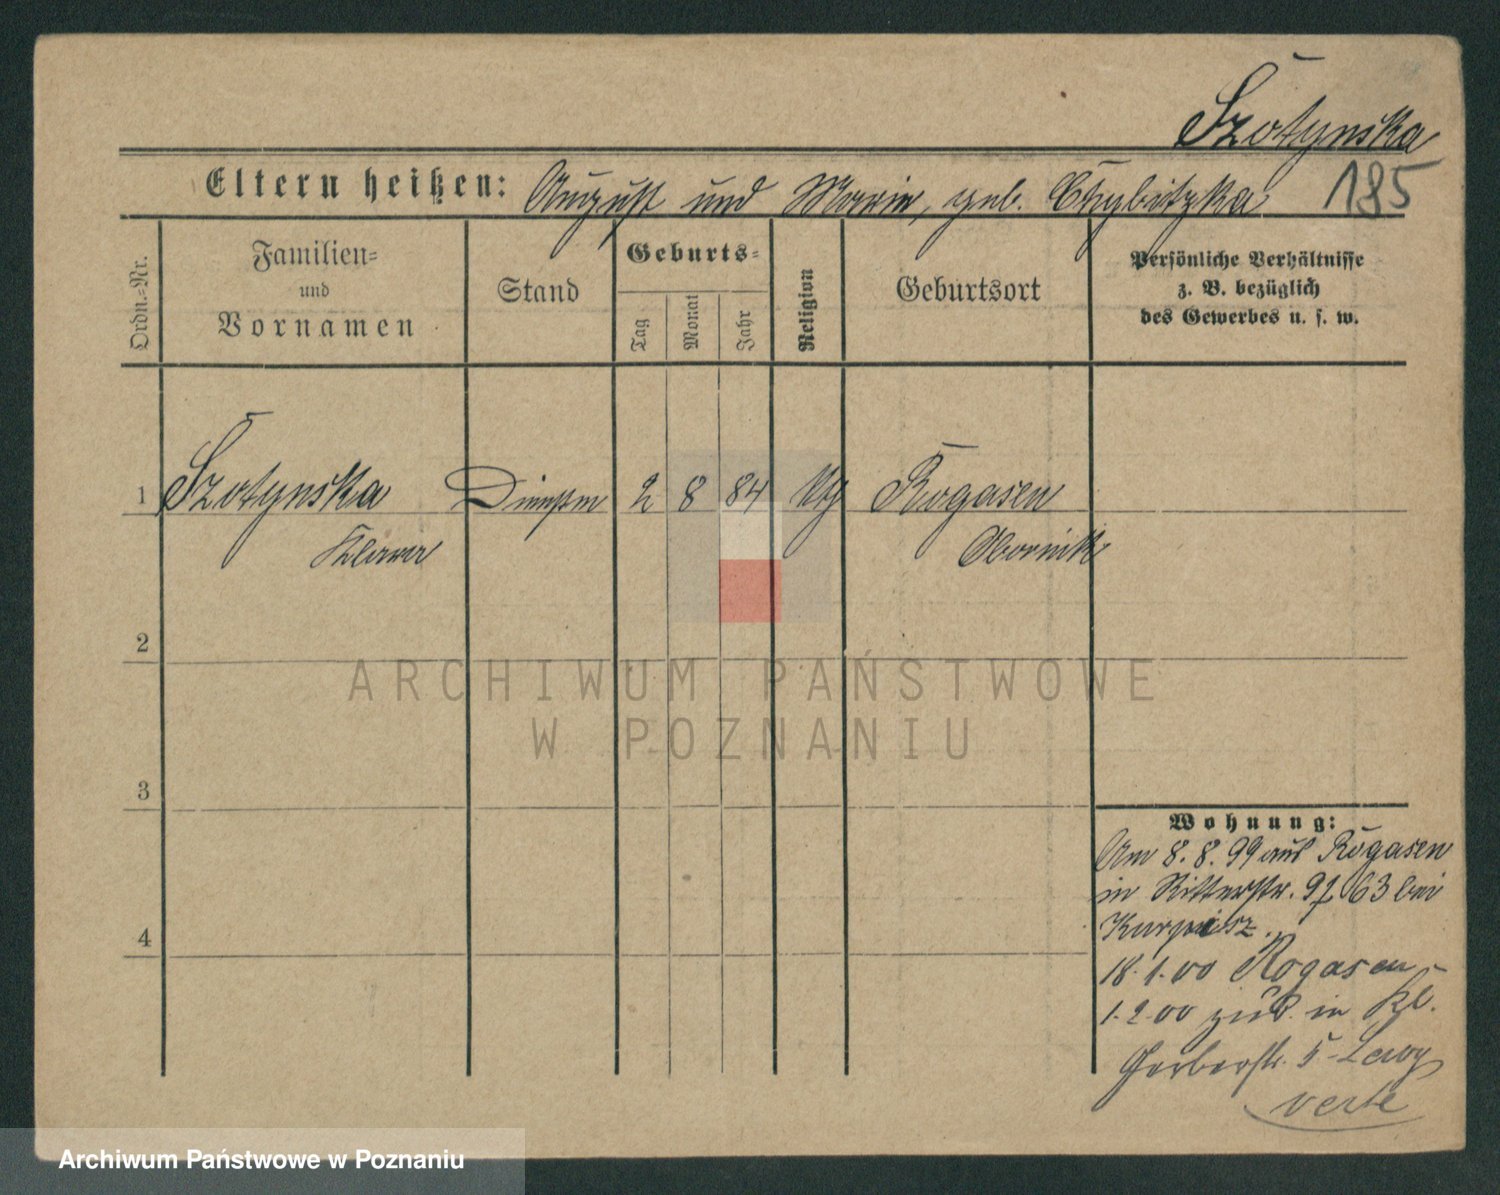 Szotynska
Eltern heißen: August und Marie, geb. Chybitzka 185
Ordn.-Nr.
Familien-
und
Vornamen
Stand
Geburts-
Tag
Monat
Jahr
Religion
Geburtsort
Persönliche Verhältnisse
z. B. bezüglich
des Gewerbes u. s. w.
1 Szotynska 2 8 84 Rogasen
Klara Obornik
2
3
4
Wohnung:
Am 8. 8. 99 aus Rogasen
in Ritterstr. 63 bei
18. 1. 00 Rogasen
1. 2. 00 zur. in Kl.
Gerberstr. 5 Lewy
verte
ARCHIWUM PAŃSTWOWE
W POZNANIU
Archiwum Państwowe w Poznaniu